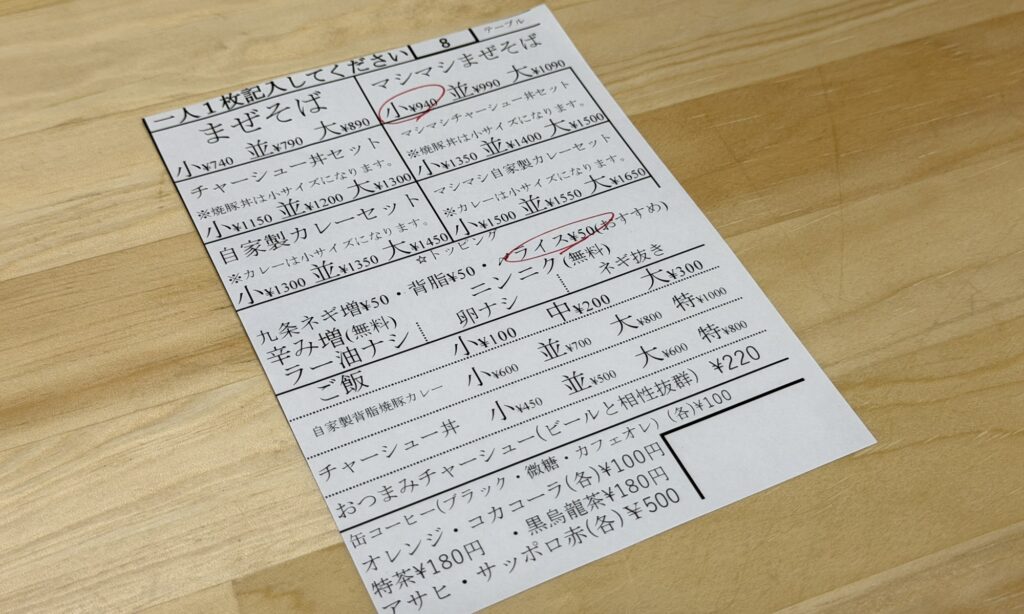 8 テーブル
一人１枚記入してください
まぜそば
小¥740 並¥790 大¥890
チャーシュー丼セット
※焼豚丼は小サイズになります。
小¥1150 並¥1200 大¥1300
自家製カレーセット
※カレーは小サイズになります。
小¥1300 並¥1350 大¥1450
マシマシまぜそば
小¥940 並¥990 大¥1090
マシマシチャーシュー丼セット
※焼豚丼は小サイズになります。
小¥1350 並¥1400 大¥1500
マシマシ自家製カレーセット
※カレーは小サイズになります。
小¥1500 並¥1550 大¥1650
☆トッピング
九条ネギ増¥50・背脂¥50・ライス¥50(おすすめ)
辛み増(無料) ニンニク(無料)
ラー油ナシ 卵ナシ ネギ抜き
ご飯 小¥100 中¥200 大¥300
自家製背脂焼豚カレー 小¥600 並¥700 大¥800 特¥1000
チャーシュー丼 小¥450 並¥500 大¥600 特¥800
おつまみチャーシュー(ビールと相性抜群) ¥220
缶コーヒー(ブラック・微糖・カフェオレ) (各)¥100
オレンジ・コカコーラ(各)¥100円
特茶¥180円 ・黒烏龍茶¥180円
アサヒ・サッポロ赤(各)¥500